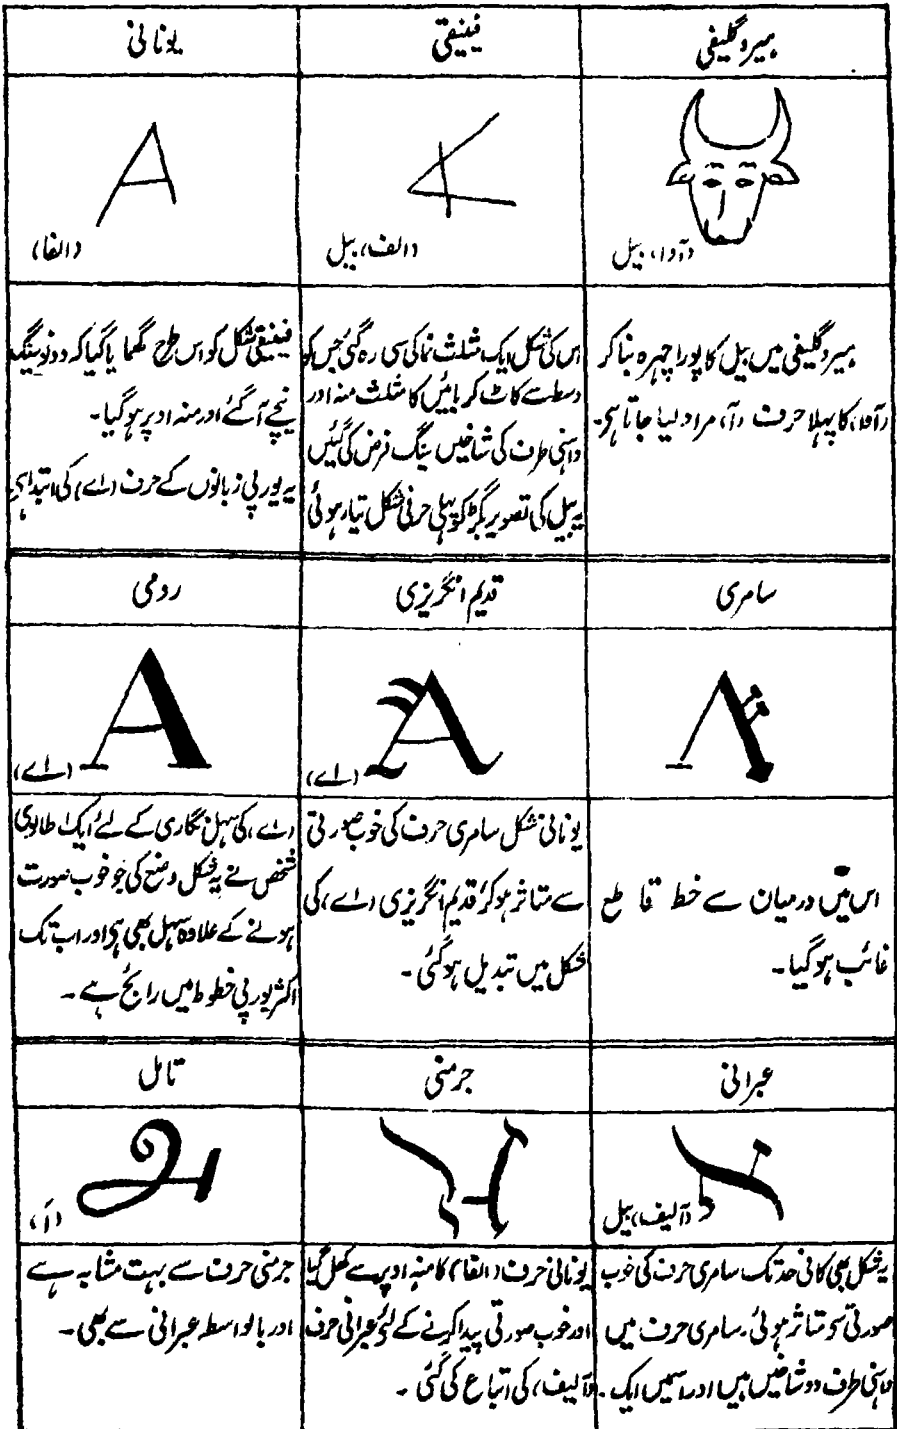 ہیروگلیفی
فینیقی
یونانی
(آوا) بیل
(الف) بیل
(الفا)
ہیروگلیفی میں بیل کا پورا چہرہ بنا کر
(آوا) کا پہلا حرف (آ) مراد لیا جاتا ہی۔
اس کی شکل ایک مثلث نما کی سی رہ گئی جس کو
وسط سے کاٹ کر بائیں کا مثلث منہ اور
داہنی طرف کی شاخیں سینگ فرض کی گئیں
یہ بیل کی تصویر بگڑ کر پہلی حرفی شکل تیار ہوئی
فینیقی شکل کو اس طرح گھمایا گیا کہ دونو سینگ
نیچے آ گئے اور منہ اوپر ہو گیا۔
یہ یورپی زبانوں کے حرف (اے) کی ابتدا ہی
سامری
قدیم انگریزی
رومی
(اے)
(اے)
اس میں درمیان سے خط قاطع
غائب ہو گیا۔
یونانی شکل سامری حرف کی خوب صورتی
سے متاثر ہو کر قدیم انگریزی (اے) کی
شکل میں تبدیل ہو گئی۔
(اے) کی سہل نگاری کے لئے ایک اطالوی
شخص نے یہ شکل وضع کی جو خوب صورت
ہونے کے علاوہ سہل بھی ہی اور اب تک
اکثر یورپی خطوط میں رائج ہے۔
عبرانی
جرمنی
تامل
(آلیف) بیل
(اَ)
یہ شکل بھی کافی حد تک سامری حرف کی خوب
صورتی سے متاثر ہوئی۔ سامری حرف میں
داہنی طرف دو شاخیں ہیں اور اسمیں ایک۔
یونانی حرف (الفا) کا منہ اوپر سے کھل گیا
اور خوب صورتی پیدا کرنے کے لئے عبرانی حرف
(آلیف) کی اتباع کی گئی۔
جرمنی حرف سے بہت مشابہ ہے
اور بالواسطہ عبرانی سے بھی۔